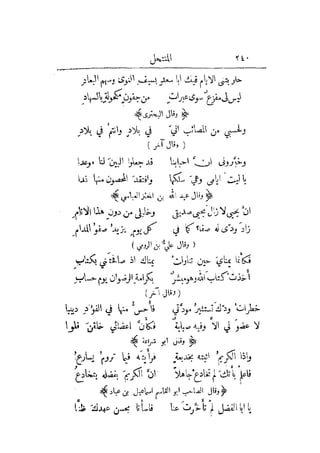 ٢٤٠ المنتحل
جار بيني الايام فيك ابا سعد بسيف النوى وسهم البعاد
ليس لي مفزع سوى عبرات من جفون مكحولة بالسهاد
﴿ وقال البحتري ﴾
وحسبي من المصائب اني في بلاد وانتم في بلاد
( وقال آخر )
وخبروني ان احبابنا قد جعلوا البين لنا موعدا
يا ليت ايامي وهي سلكها وافتقد المحصون منها غدا
﴿ وقال عبد الله بن المعتز العباسي ﴾
ان يحيى لا زال يحيى صديقي وخليلي من دون هذا الانام
زاد ودي له صفاء كما في كل يوم يزيد صفو المدام
( وقال علي بن الرومي )
فكأنما يمناي حين تناولت يمناك اذ صافحتني بكتاب
أخذت كتاب الله وهو مبشر بكرامة الرضوان يوم حساب
( وقال آخر )
خطرات ودك تستثير مودتي فأحس منها في الفؤاد دبيبا
لا عضو لي الا وفيه صبابة فكأن اعضائي خلقن قلوبا
﴿ وقال ابو شراعة ﴾
واذا الكريم اتيته بخديعة فرأيته فيما تروم يسارع
فاعلم بأنك لم تخادع جاهلا ان الكريم بفضله يتخادع
﴿ وقال الصاحب ابو القاسم اسماعيل بن عباد ﴾
يا ابا الفضل لم تأخرت عنا فاسأنا بحسن عهدك ظنا